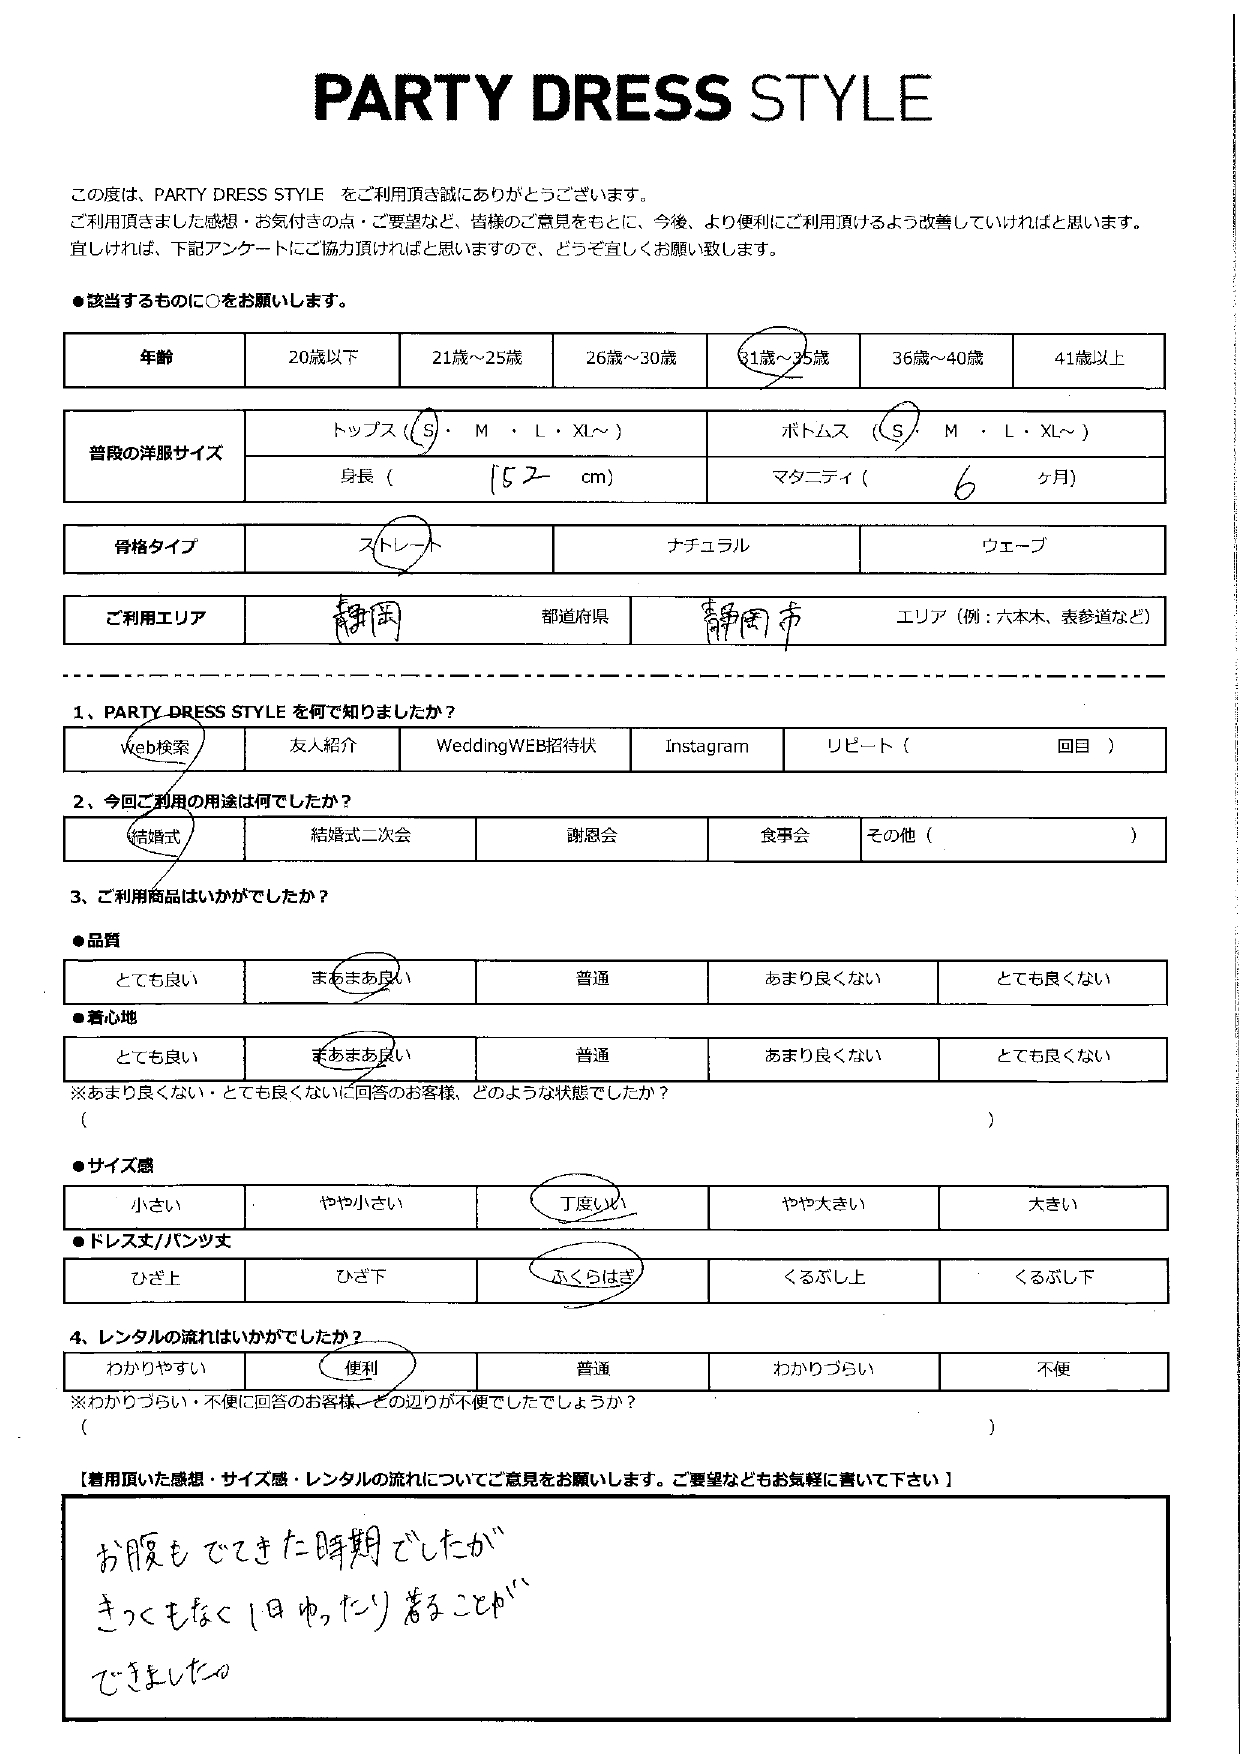 PARTY DRESS STYLE
この度は、PARTY DRESS STYLE をご利用頂き誠にありがとうございます。
ご利用頂きました感想・お気付きの点・ご要望など、皆様のご意見をもとに、今後、より便利にご利用頂けるよう改善していければと思います。
宜しければ、下記アンケートにご協力頂ければと思いますので、どうぞ宜しくお願い致します。
●該当するものに○をお願いします。
年齢 20歳以下 21歳～25歳 26歳～30歳 31歳～35歳 36歳～40歳 41歳以上
普段の洋服サイズ トップス (S・ M ・ L・ XL～ ) ボトムス (S・ M ・ L・ XL～ )
身長 ( 152 cm) マタニティ ( 6 ヶ月)
骨格タイプ ストレート ナチュラル ウェーブ
ご利用エリア 静岡 都道府県 静岡市 エリア（例：六本木、表参道など）
1、PARTY DRESS STYLE を何で知りましたか？
Web検索 友人紹介 WeddingWEB招待状 Instagram リピート ( 回目 )
2、今回ご利用の用途は何でしたか？
結婚式 結婚式二次会 謝恩会 食事会 その他 ( )
3、ご利用商品はいかがでしたか？
●品質
とても良い まあまあ良い 普通 あまり良くない とても良くない
●着心地
とても良い まあまあ良い 普通 あまり良くない とても良くない
※あまり良くない・とても良くないに回答のお客様、どのような状態でしたか？
( )
●サイズ感
小さい やや小さい 丁度いい やや大きい 大きい
●ドレス丈/パンツ丈
ひざ上 ひざ下 ふくらはぎ くるぶし上 くるぶし下
4、レンタルの流れはいかがでしたか？
わかりやすい 便利 普通 わかりづらい 不便
※わかりづらい・不便に回答のお客様、どの辺りが不便でしたでしょうか？
( )
【着用頂いた感想・サイズ感・レンタルの流れについてご意見をお願いします。ご要望などもお気軽に書いて下さい 】
お腹もでてきた時期でしたが
きつくもなく1日ゆったり着ることが
できました。